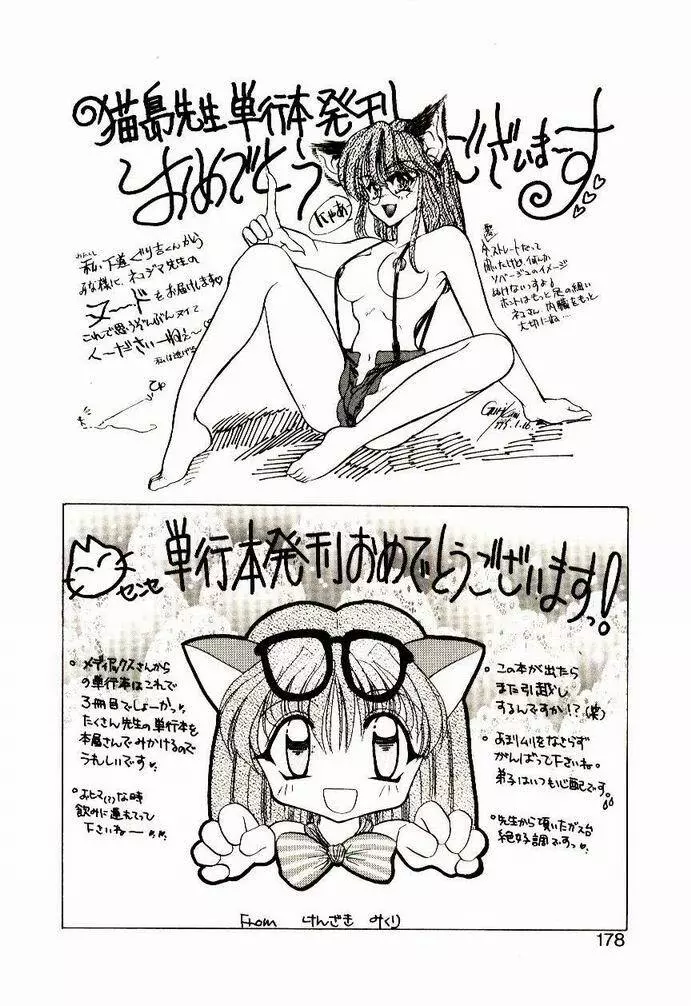 猫島先生単行本発刊
おめでとうございま〜す♡♡♡
にゃあ
私、下道ぐり吉くんから
みな様に、ネコジマ先生の
ヌードをお届けします♡
これで思うぞんぶんヌイて
く〜ださい〜ねぇ〜♡
ネコさん、内臓をもっと
大切にね…
センセ
単行本発刊おめでとうございますっ!
メディアックスさんから
の単行本はこれで
3冊目でしょーか。
たくさん先生の単行本を
本屋さんでみかけるので
うれしいです♡
おヒマ(?)な時
飲みに連れてって
下さいねー
この本が出たら
また引越し
するんですか!?(笑)
あまりムリをなさらず
がんばって下さいね。
弟子はいつも心配です。
先生から頂いたガス台
絶好調ですっ
From けんざき みくり
178